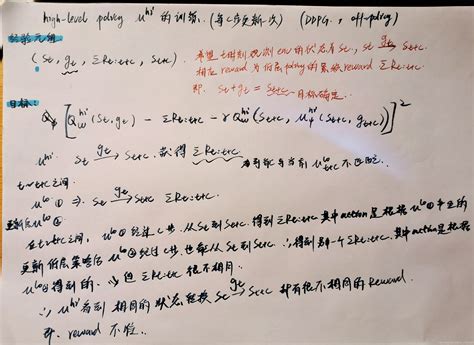 high-level policy μ^hi 的训练. (每c步更新一次) (DDPG, off-policy)
经验元组
(St, gt, ΣRt:t+c, St+c). 希望 t时刻观测env的状态为St, St →^gt St+c.
相应reward为低层policy的累积reward ΣRt:t+c
即: St+gt = St+c 目标确定.
目标:
[Q_w^hi (St, gt) - ΣRt:t+c - γQ_w^hi (St+c, μ_φ^hi (St+c, gt+c))]²
μ^hi St →^gt St+c 获得 ΣRt:t+c
t~t+c之间.
μ^lo ① ⇒ St →^gt St+c ΣRt:t+c
更新后μ^lo ②
在t~t+c之间, μ^lo ① 经过c步, 从St到St+c. 得到ΣRt:t+c 其中action是根据μ^lo ①产生的
更新低层策略后μ^lo ②经过c步, 也能从St到St+c. ∴得到另一个ΣRt:t+c. 其中action是根据
μ^lo ②得到的. 但ΣRt:t+c 很不相同.
∴ μ^hi 看到 相同的状态转换 St →^gt St+c 却有很不相同的Reward.
即 reward 不稳.